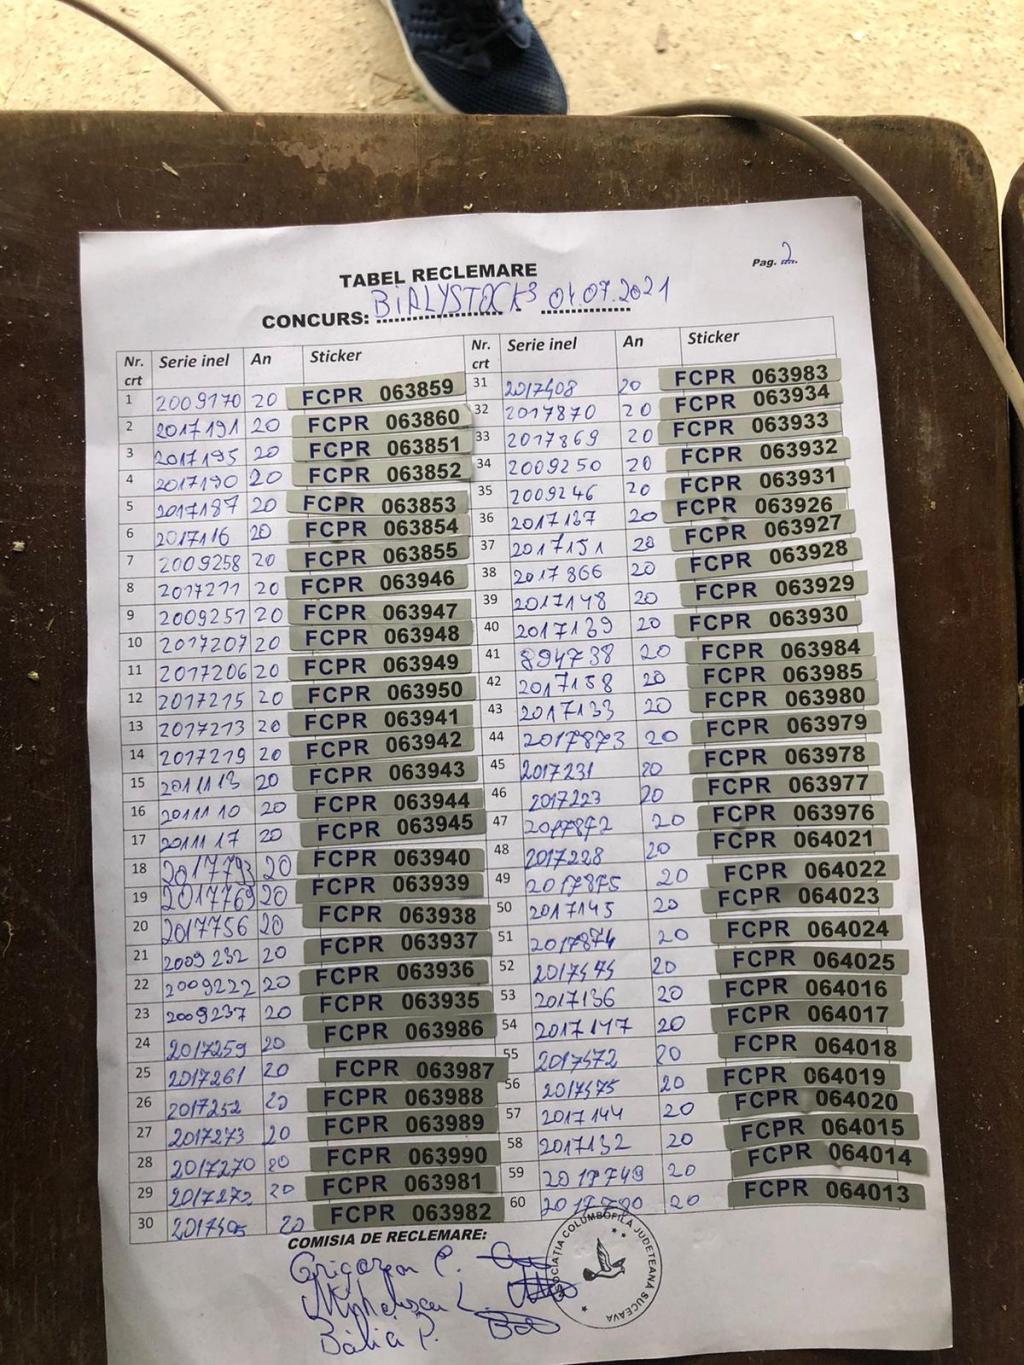 Pag. 2
TABEL RECLEMARE
CONCURS: BIALYSTOCK3 04.07.2021
Nr. crt Serie inel An Sticker Nr. crt Serie inel An Sticker
1 2009170 20 FCPR 063859 31 2017408 20 FCPR 063983
2 2017191 20 FCPR 063860 32 2017870 20 FCPR 063934
3 2017195 20 FCPR 063851 33 2017869 20 FCPR 063933
4 2017190 20 FCPR 063852 34 2009250 20 FCPR 063932
5 2017187 20 FCPR 063853 35 2009246 20 FCPR 063931
6 2017116 20 FCPR 063854 36 2017137 20 FCPR 063926
7 2009258 20 FCPR 063855 37 2017151 20 FCPR 063927
8 2017211 20 FCPR 063946 38 2017866 20 FCPR 063928
9 2009251 20 FCPR 063947 39 2017148 20 FCPR 063929
10 2017207 20 FCPR 063948 40 2017139 20 FCPR 063930
11 2017206 20 FCPR 063949 41 894738 20 FCPR 063984
12 2017215 20 FCPR 063950 42 2017158 20 FCPR 063985
13 2017213 20 FCPR 063941 43 2017133 20 FCPR 063980
14 2017219 20 FCPR 063942 44 2017873 20 FCPR 063979
15 2011113 20 FCPR 063943 45 2017231 20 FCPR 063978
16 2011110 20 FCPR 063944 46 2017223 20 FCPR 063977
17 2011117 20 FCPR 063945 47 2017872 20 FCPR 063976
18 2017793 20 FCPR 063940 48 2017228 20 FCPR 064021
19 2017769 20 FCPR 063939 49 2017875 20 FCPR 064022
20 2017756 20 FCPR 063938 50 2017145 20 FCPR 064023
21 2009232 20 FCPR 063937 51 2017874 20 FCPR 064024
22 2009222 20 FCPR 063936 52 20 FCPR 064025
23 2009237 20 FCPR 063935 53 2017136 20 FCPR 064016
24 2017259 20 FCPR 063986 54 2017147 20 FCPR 064017
25 2017261 20 FCPR 063987 55 2017472 20 FCPR 064018
26 2017252 20 FCPR 063988 56 2017475 20 FCPR 064019
27 2017273 20 FCPR 063989 57 2017144 20 FCPR 064020
28 2017270 20 FCPR 063990 58 2017132 20 FCPR 064015
29 2017272 20 FCPR 063981 59 2017749 20 FCPR 064014
30 2017405 20 FCPR 063982 60 20 FCPR 064013
COMISIA DE RECLEMARE:
P.
L.
P.
ASOCIATIA COLUMBOFILA JUDETEANA SUCEAVA